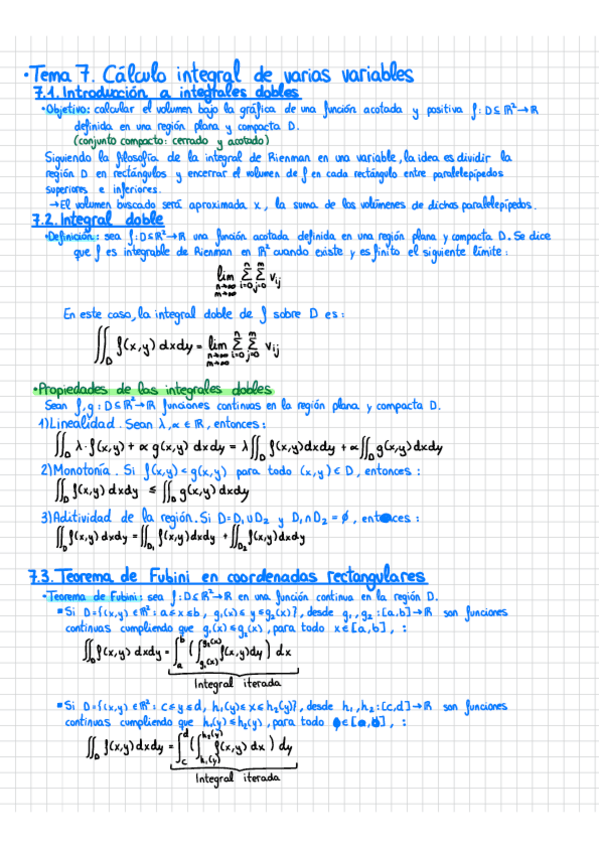 ·Tema 7. Cálculo integral de varias variables
7.1. Introducción a integrales dobles
·Objetivo: calcular el volumen bajo la gráfica de una función acotada y positiva f: D⊆ℝ²→ℝ
definida en una región plana y compacta D.
(conjunto compacto: cerrado y acotado)
Siguiendo la filosofía de la integral de Rienman en una variable, la idea es dividir la
región D en rectángulos y encerrar el volumen de f en cada rectángulo entre paralelepípedos
superiores e inferiores.
→El volumen buscado será aproximada x, la suma de los volúmenes de dichos paralelepípedos.
7.2. Integral doble
·Definición: sea f: D⊆ℝ²→ℝ una función acotada definida en una región plana y compacta D. Se dice
que f es integrable de Rienman en ℝ² cuando existe y es finito el siguiente límite:
lim_{n→∞, m→∞} Σ_{i=0}^{n} Σ_{j=0}^{m} v_{ij}
En este caso, la integral doble de f sobre D es:
∬_D f(x,y) dxdy = lim_{n→∞, m→∞} Σ_{i=0}^{n} Σ_{j=0}^{m} v_{ij}
·Propiedades de las integrales dobles
Sean f,g: D⊆ℝ²→ℝ funciones continuas en la región plana y compacta D.
1) Linealidad. Sean λ,α∈ℝ, entonces:
∬_D λ·f(x,y) + α g(x,y) dxdy = λ∬_D f(x,y) dxdy + α∬_D g(x,y) dxdy
2) Monotonía. Si f(x,y) < g(x,y) para todo (x,y)∈D, entonces:
∬_D f(x,y) dxdy ≤ ∬_D g(x,y) dxdy
3) Aditividad de la región. Si D=D₁∪D₂ y D₁∩D₂=∅, entonces:
∬_D f(x,y) dxdy = ∬_{D₁} f(x,y) dxdy + ∬_{D₂} f(x,y) dxdy
7.3. Teorema de Fubini en coordenadas rectangulares
·Teorema de Fubini: sea f: D⊆ℝ²→ℝ en una función continua en la región D.
▪Si D={(x,y)∈ℝ²: a≤x≤b, g₁(x)≤y≤g₂(x)}, desde g₁,g₂: [a,b]→ℝ son funciones
continuas cumpliendo que g₁(x)≤g₂(x), para todo x∈[a,b], :
∬_D f(x,y) dxdy = ∫_a^b (∫_{g₁(x)}^{g₂(x)} f(x,y) dy) dx
Integral iterada
▪Si D={(x,y)∈ℝ²: c≤y≤d, h₁(y)≤x≤h₂(y)}, desde h₁,h₂: [c,d]→ℝ son funciones
continuas cumpliendo que h₁(y)≤h₂(y), para todo ∈[ , ], :
∬_D f(x,y) dxdy = ∫_c^d (∫_{h₁(y)}^{h₂(y)} f(x,y) dx) dy
Integral iterada